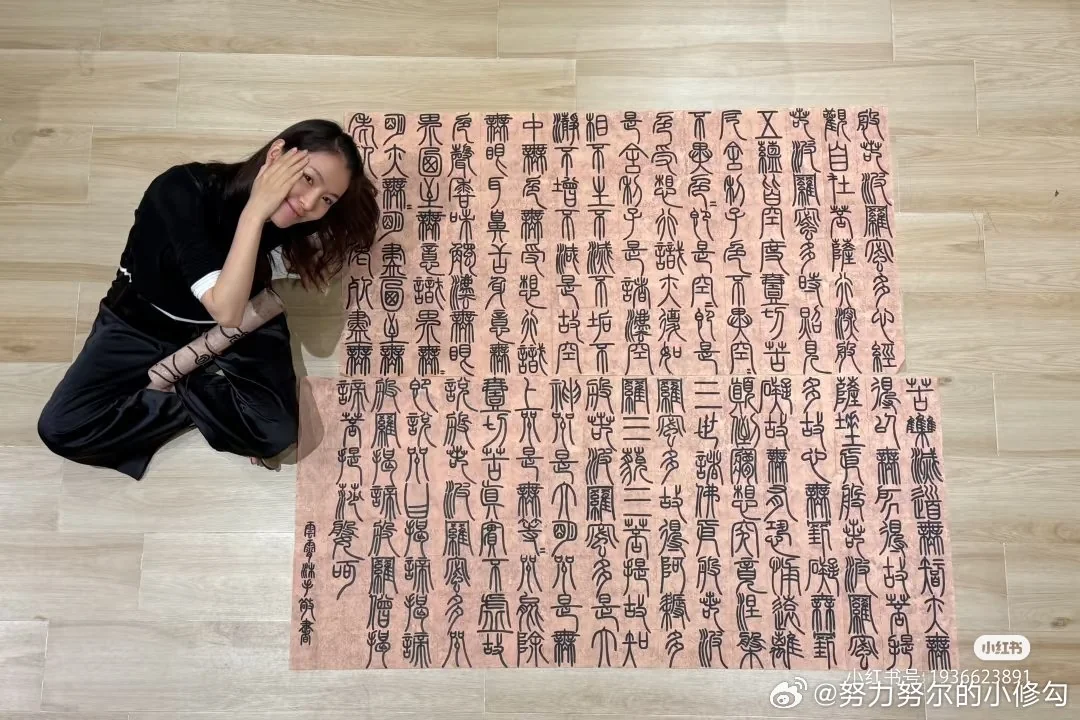 般若波羅蜜多心經
觀自在菩薩行深般
若波羅蜜多時照見
五蘊皆空度壹切苦
厄舍利子色不異空=
不異色=即是空=即是
色受想行識亦復如
是舍利子是諸法空
相不生不滅不垢不
淨不增不減是故空
中無色無受想行識
無眼耳鼻舌身意無
色聲香味觸法無眼
界乃至無意識界無=
明亦無明盡乃至無
老死死盡無
苦集滅道無智亦無
得以無所得故菩提
薩埵依般若波羅蜜
多故心無罣礙無罣
礙故無有恐怖遠離
顛倒夢想究竟涅槃
三世諸佛依般若波
羅蜜多故得阿耨多
羅三藐三菩提故知
般若波羅蜜多是大
神咒是大明咒是無
上咒是無等=咒能除
壹切苦真實不虛故
說般若波羅蜜多咒
即說咒曰揭諦揭諦
般羅揭諦般羅僧揭
諦菩提莎婆訶
沐手敬書
小红书
小红书号: 1936623891
@努力努尔的小修勾